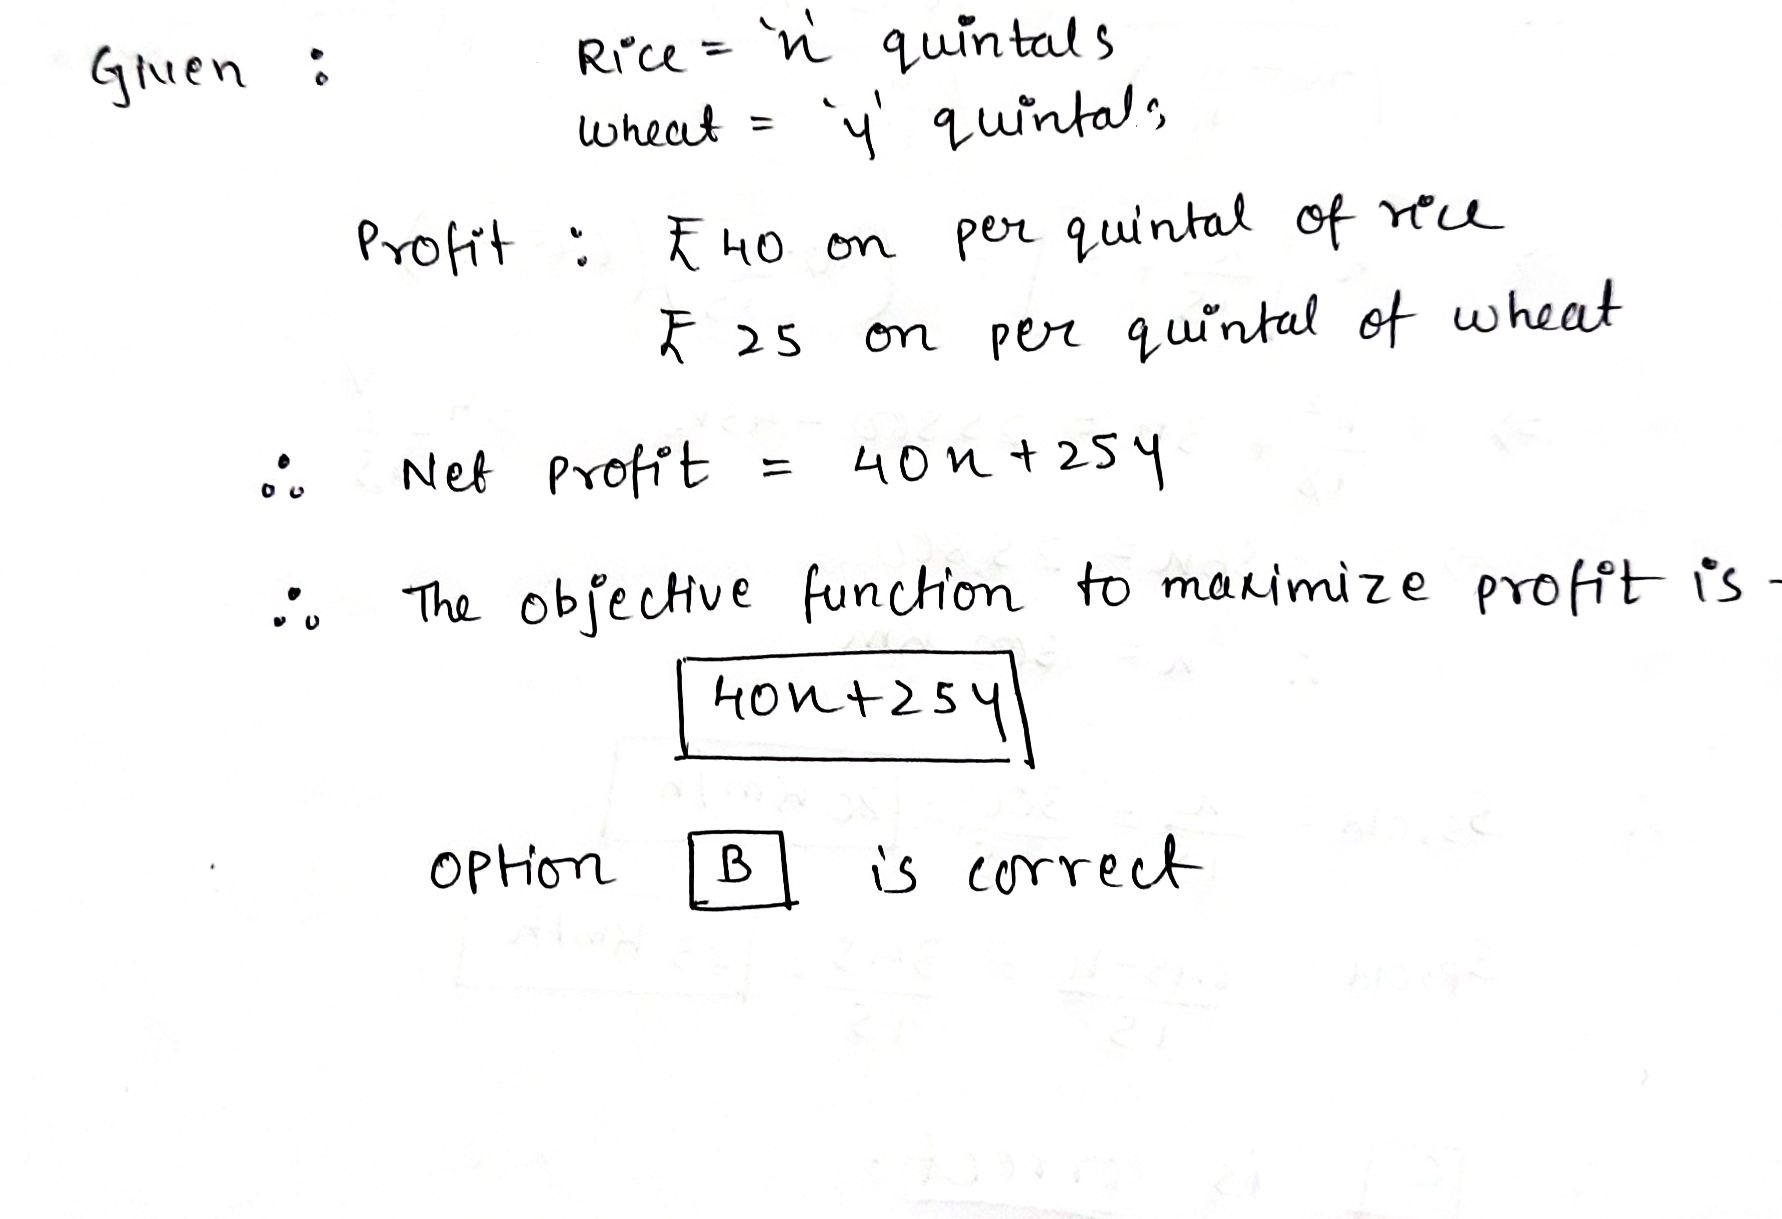 Given : Rice = 'x' quintals
wheat = 'y' quintals
Profit : ₹ 40 on per quintal of rice
₹ 25 on per quintal of wheat
∴ Net profit = 40x + 25y
∴ The objective function to maximize profit is -
40x+25y
option B is correct